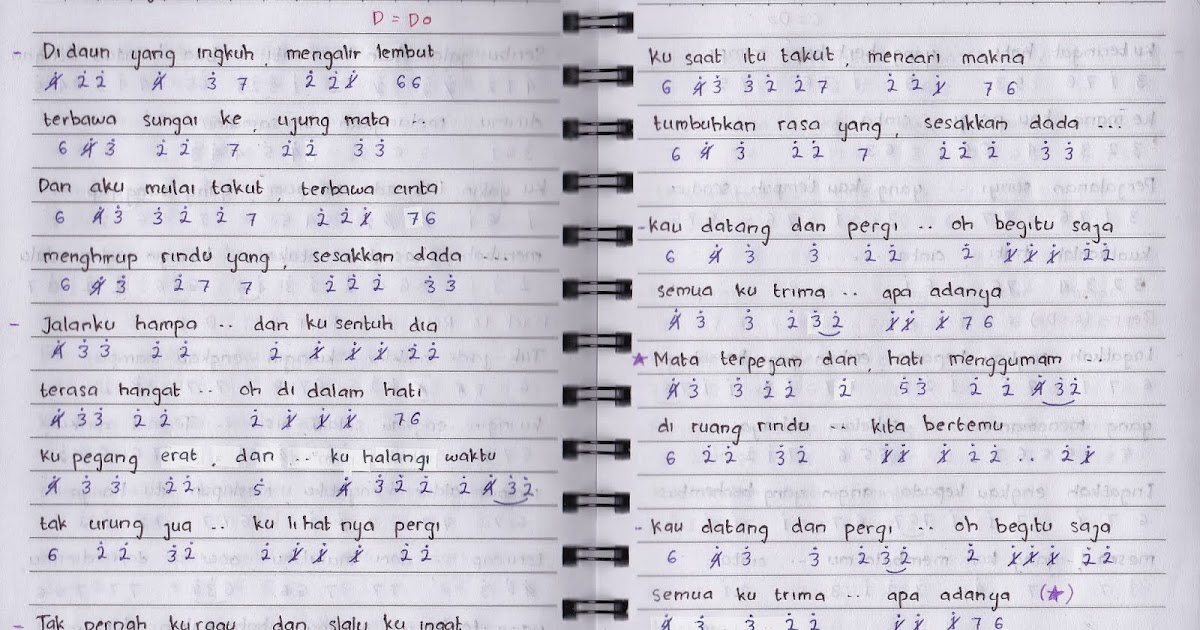 D = Do
- Di daun yang ingkuh, mengalir lembut
4̸̇ 2̇ 2̇ 4̸̇ 3̇ 7 2̇ 2̇ 1̸̇ 6 6
terbawa sungai ke, ujung mata ...
6 4̸̇ 3̇ 2̇ 2̇ 7 2̇ 2̇ 3̇ 3̇
Dan aku mulai takut, terbawa cinta
6 4̸̇ 3̇ 3̇ 2̇ 2̇ 7 2̇ 2̇ 1̸̇ 7 6
menghirup rindu yang, sesakkan dada ...
6 4̸̇ 3̇ 2̇ 7 7 2̇ 2̇ 2̇ 3̇ 3̇
- Jalanku hampa .. dan ku sentuh dia
4̸̇ 3̇ 3̇ 2̇ 2̇ 2̇ 1̸̇ 1̸̇ 1̸̇ 2̇ 2̇
terasa hangat .. oh di dalam hati
4̸̇ 3̇ 3̇ 2̇ 2̇ 2̇ 1̸̇ 1̸̇ 1̸̇ 7 6
ku pegang erat, dan .. ku halangi waktu
4̸̇ 3̇ 3̇ 2̇ 2̇ 5̇ 4̸̇ 3̇ 2̇ 2̇ 2̇ 4̸̇ 3̇ 2̇
tak urung jua .. ku lihat nya pergi
6 2̇ 2̇ 3̇ 2̇ 2̇ 1̸̇ 1̸̇ 1̸̇ 2̇ 2̇
- Tak pernah ku ragu dan slalu ku ingat
ku saat itu takut, mencari makna
6 4̸̇ 3̇ 3̇ 2̇ 2̇ 7 2̇ 2̇ 1̸̇ 7 6
tumbuhkan rasa yang, sesakkan dada ...
6 4̸̇ 3̇ 2̇ 2̇ 7 2̇ 2̇ 2̇ 3̇ 3̇
- kau datang dan pergi .. oh begitu saja
6 4̸̇ 3̇ 3̇ 2̇ 2̇ 2̇ 1̸̇ 1̸̇ 1̸̇ 2̇ 2̇
semua ku trima .. apa adanya
4̸̇ 3̇ 3̇ 2̇ 3̇ 2̇ 1̸̇ 1̸̇ 1̸̇ 7 6
★ Mata terpejam dan, hati menggumam
4̸̇ 3̇ 3̇ 2̇ 2̇ 2̇ 5̇ 3̇ 2̇ 2̇ 4̸̇ 3̇ 2̇
di ruang rindu .. kita bertemu
6 2̇ 2̇ 3̇ 2̇ 1̸̇ 1̸̇ 1̸̇ 2̇ 2̇ .. 2̇ 1̸̇
- kau datang dan pergi .. oh begitu saja
6 4̸̇ 3̇ 3̇ 2̇ 3̇ 2̇ 2̇ 1̸̇ 1̸̇ 1̸̇ 2̇ 2̇
semua ku trima .. apa adanya (★)
4̸̇ 3̇ 3̇ 2̇ 2̇ 1̸̇ 1̸̇ 1̸̇ 7 6